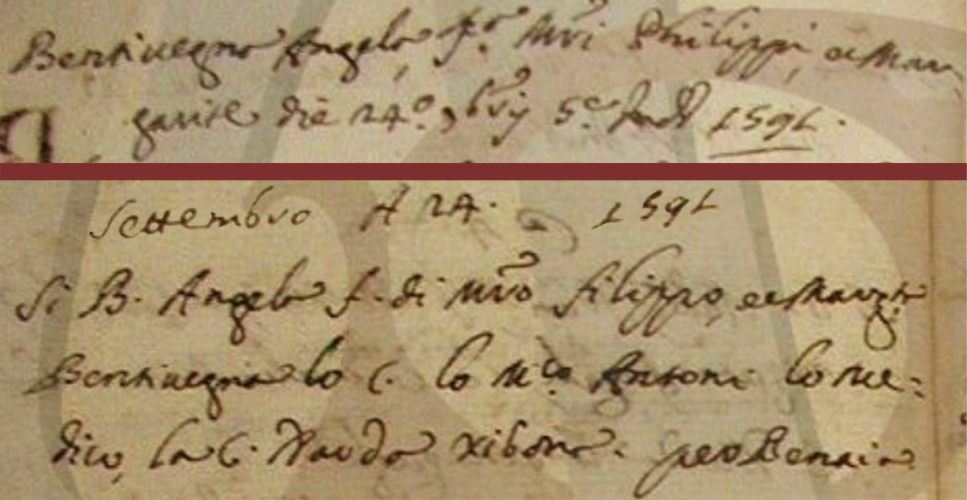 Bentiuegna Angelo f.o Mri Philippi, et Mar
garite die 24.o 7bris 5.e Ind. 1591.
Settembro A 24. 1591
Si B. Angelo f. di Mro filippo, et Margta
Bentiuegna lo C. lo M.co Antoni lo me:
dico, la C. Narda